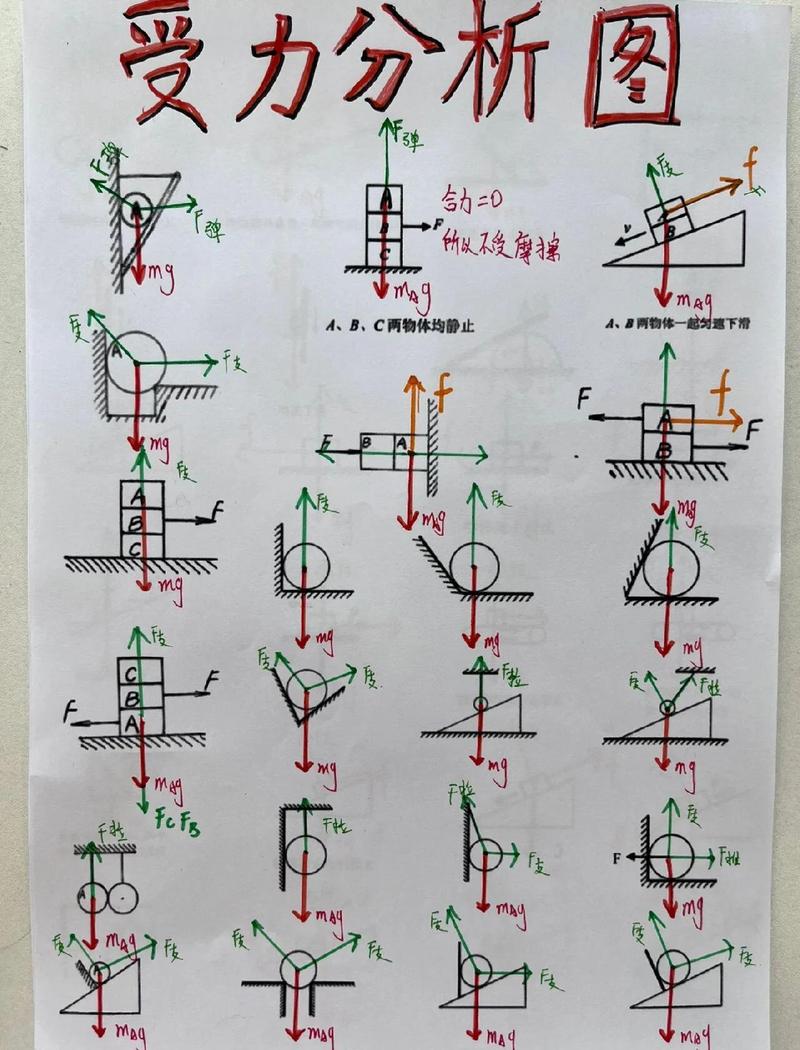 受力分析图
F弹
F弹
mg
F弹
A
B
C
F
mAg
合力=0
所以不受摩擦
A、B、C两物体均静止
F支
f
A
B
v
mAg
A、B两物体一起匀速下滑
F支
A
F支
mg
f
F
B
A
mAg
F
f
A
B
F
mg
F支
A
B
C
F
mg
F支
mg
F支
mg
F支
mg
F支
C
B
A
F
F
mAg
FC FB
F支
F支
mg
F拉
mg
F支
F拉
mg
F拉
A
mAg
F拉
mAg
F拉
F支
mAg
F支
F
F推
mg
F支
F支
A
mAg
F支
F支
mAg
F支
F支
mAg
F支
F支
mAg